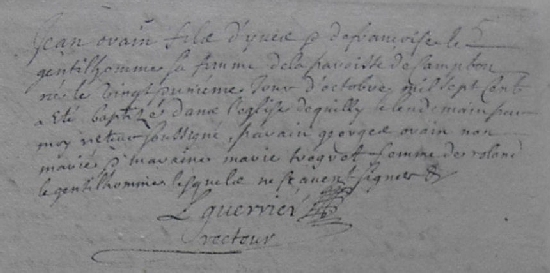 Jean orain fils d'yves & de francoise le
gentilhomme sa femme de la paroisse de
ne le vingt unieme Jour d'octobre mil sept cent
a eté baptizé dans l'eglise de quilly le lendemain par
moy recteur soussigné, parain georges orain non
marié & maraine marie troquet femme de rolland
le gentilhomme lesquels ne scavent signer
guerrier
recteur